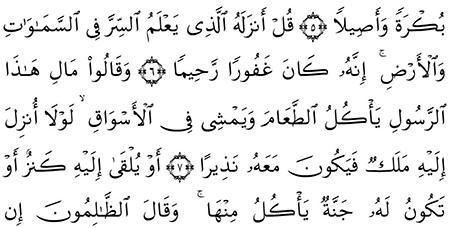 بُكْرَةً وَأَصِيلًا ﴿٥﴾ قُلْ أَنزَلَهُ ٱلَّذِى يَعْلَمُ ٱلسِّرَّ فِى ٱلسَّمَـٰوَٰتِ
وَٱلْأَرْضِ ۚ إِنَّهُۥ كَانَ غَفُورًا رَّحِيمًا ﴿٦﴾ وَقَالُوا۟ مَالِ هَـٰذَا
ٱلرَّسُولِ يَأْكُلُ ٱلطَّعَامَ وَيَمْشِى فِى ٱلْأَسْوَاقِ ۙ لَوْلَآ أُنزِلَ
إِلَيْهِ مَلَكٌ فَيَكُونَ مَعَهُۥ نَذِيرًا ﴿٧﴾ أَوْ يُلْقَىٰٓ إِلَيْهِ كَنزٌ أَوْ
تَكُونُ لَهُۥ جَنَّةٌ يَأْكُلُ مِنْهَا ۚ وَقَالَ ٱلظَّـٰلِمُونَ إِن